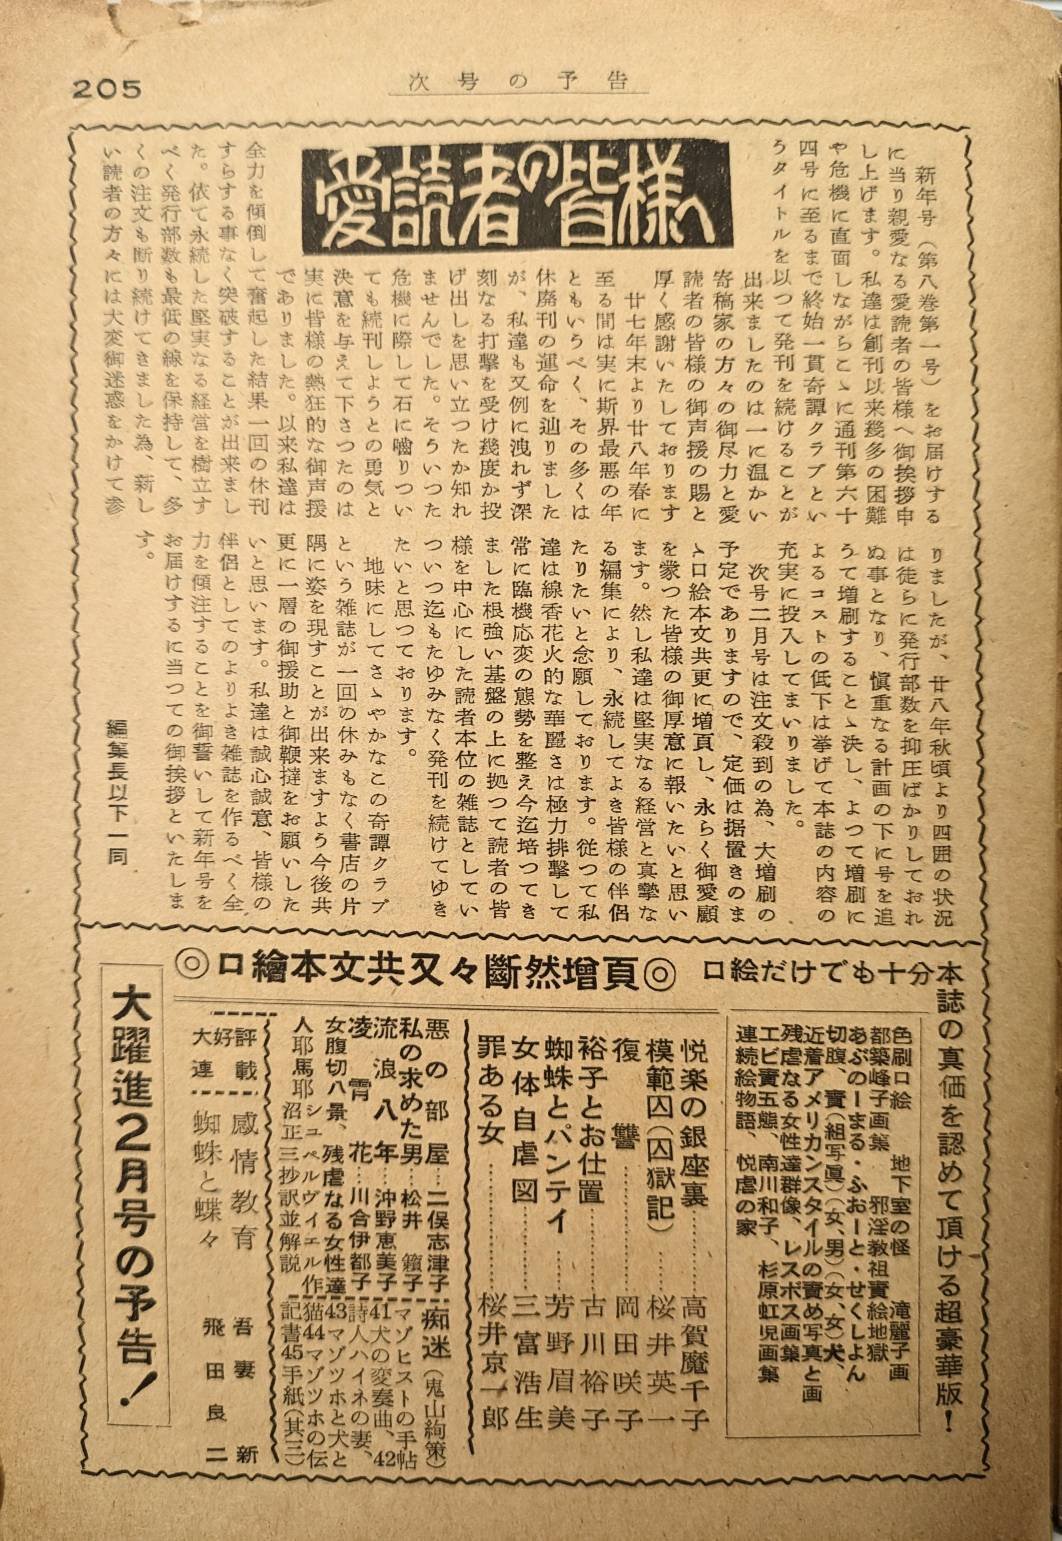 205
次号の予告
愛読者の皆様へ
新年号(第八巻第一号)をお届けする
に当り親愛なる愛読者の皆様へ御挨拶申
し上げます。私達は創刊以来幾多の困難
や危機に直面しながらこゝに通刊第六十
四号に至るまで終始一貫奇譚クラブとい
うタイトルを以つて発刊を続けることが
出来ましたのは一に温かい
寄稿家の方々の御尽力と愛
読者の皆様の御声援の賜と
厚く感謝いたしております
廿七年末より廿八年春に
至る間は実に斯界最悪の年
ともいうべく、その多くは
休廃刊の運命を辿りました
が、私達も又例に洩れず深
刻なる打撃を受け幾度か投
げ出しを思い立つたか知れ
ませんでした。そういつた
危機に際して石に嚙りつい
ても続刊しようとの勇気と
決意を与えて下さつたのは
実に皆様の熱狂的な御声援
でありました。以来私達は
全力を傾倒して奮起した結果一回の休刊
すらする事なく突破することが出来まし
た。依て永続した堅実なる経営を樹立す
べく発行部数も最低の線を保持して、多
くの注文も断り続けてきました為、新し
い読者の方々には大変御迷惑をかけて参
りましたが、廿八年秋頃より四囲の状況
は徒らに発行部数を抑圧ばかりしておれ
ぬ事となり、慎重なる計画の下に号を追
うて増刷することゝ決し、よつて増刷に
よるコストの低下は挙げて本誌の内容の
充実に投入してまいりました。
次号二月号は注文殺到の為、大増刷の
予定でありますので、定価は据置きのま
ゝ口絵本文共更に増頁し、永らく御愛顧
を蒙つた皆様の御厚意に報いたいと思い
ます。然し私達は堅実なる経営と真摯な
る編集により、永続してよき皆様の伴侶
たりたいと念願しております。従つて私
達は線香花火的な華麗さは極力排撃して
常に臨機応変の態勢を整え今迄培つてき
ました根強い基盤の上に拠つて読者の皆
様を中心にした読者本位の雑誌としてい
ついつ迄もたゆみなく発刊を続けてゆき
たいと思つております。
地味にしてさゝやかなこの奇譚クラブ
という雑誌が一回の休みもなく書店の片
隅に姿を現すことが出来ますよう今後共
更に一層の御援助と御鞭撻をお願いした
いと思います。私達は誠心誠意、皆様の
伴侶としてのよりよき雑誌を作るべく全
力を傾注することを御誓いして新年号を
お届けするに当つての御挨拶といたしま
す。
編集長以下一同
本誌の真価を認めて頂ける超豪華版!
口絵だけでも十分
◎口繪本文共又々斷然増頁◎
色刷口絵 地下室の怪 滝麗子画
都築峰子画集 邪淫教祖責絵地獄
あぶのーまる・ふおーと・せくしよん
切腹、責(組写眞)(女、男)(女、女)犬、
近着アメリカンスタイルの責め写真と画
残虐なる女性達群像、レスボス画集
エビ責五態、南川和子、杉原虹児画集
連続絵物語、悦虐の家
悦楽の銀座裏……高賀魔千子
模範囚(囚獄記)……桜井英一
復讐……岡田咲子
裕子とお仕置……古川裕子
蜘蛛とパンテイ……芳野眉美
女体自虐図……三富浩生
罪ある女……桜井京一郎
悪の部屋…二俣志津子
私の求めた男…松井籟子
流浪八年…沖野恵美子
凌霄花…川合伊都子
女腹切八景、残虐なる女性達
人耶馬耶 シュペルヴイエル作
沼正三抄訳並解説
痴迷(鬼山絢策)
マゾヒストの手帖
41犬の変奏曲、42
詩人ハイネの妻、
43マゾツホと犬と
猫44マゾツホの伝
記書45手紙(其三)
好評
大連載
感情教育 吾妻新
蜘蛛と蝶々 飛田良二
大躍進2月号の予告!